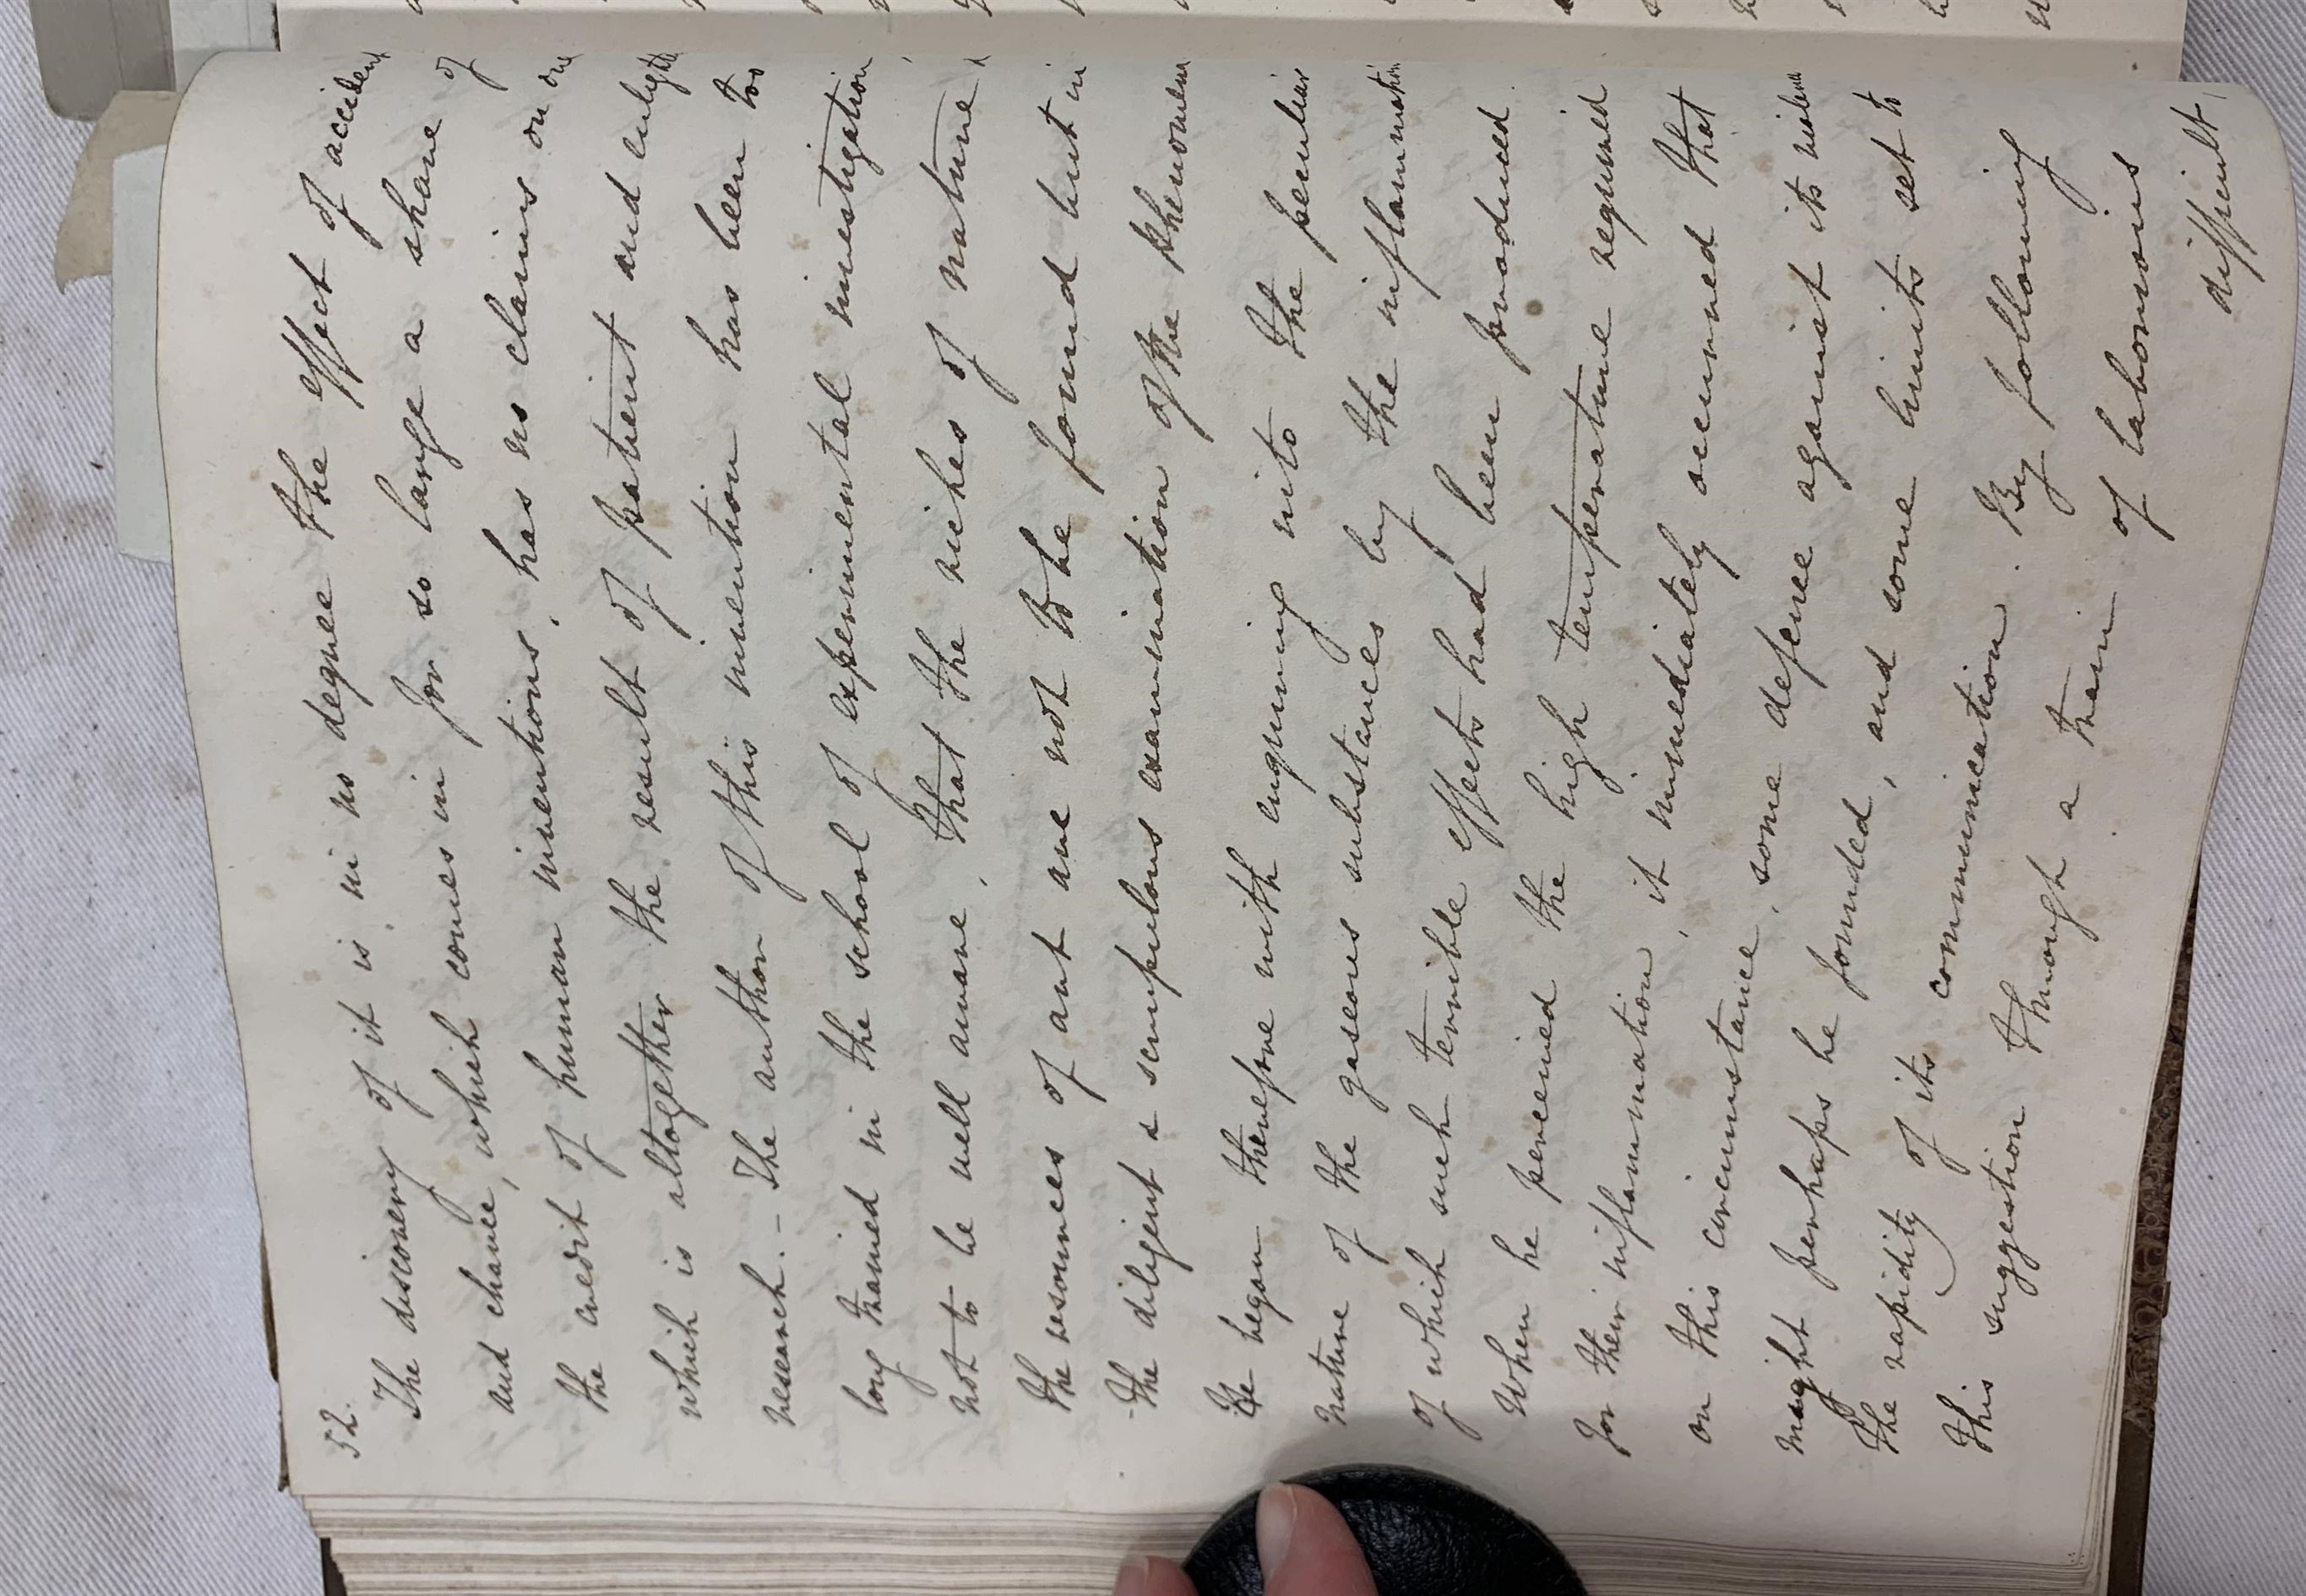 52.
The discovery of it is, in no degree the effect of accident
and chance, which comes in for so large a share of
the credit of human inventions, has no claims on one
which is altogether the result of patient and enlight
research. – The author of this invention has been too
long trained in the school of experimental investigation,
not to be well aware, that the riches of nature &
the resources of art are not to be found but in
the diligent & scrupulous examination of the phenomena
He began therefore with enquiring into the peculiar
nature of the gaseous substances by the inflammation
of which such terrible effects had been produced.
When he perceived the high temperature required
for their inflammation, it immediately occurred that
on this circumstance, some defence against its violence
might perhaps be founded, and some limits set to
the rapidity of its communication. By following
this suggestion through a train of laborious
difficult,